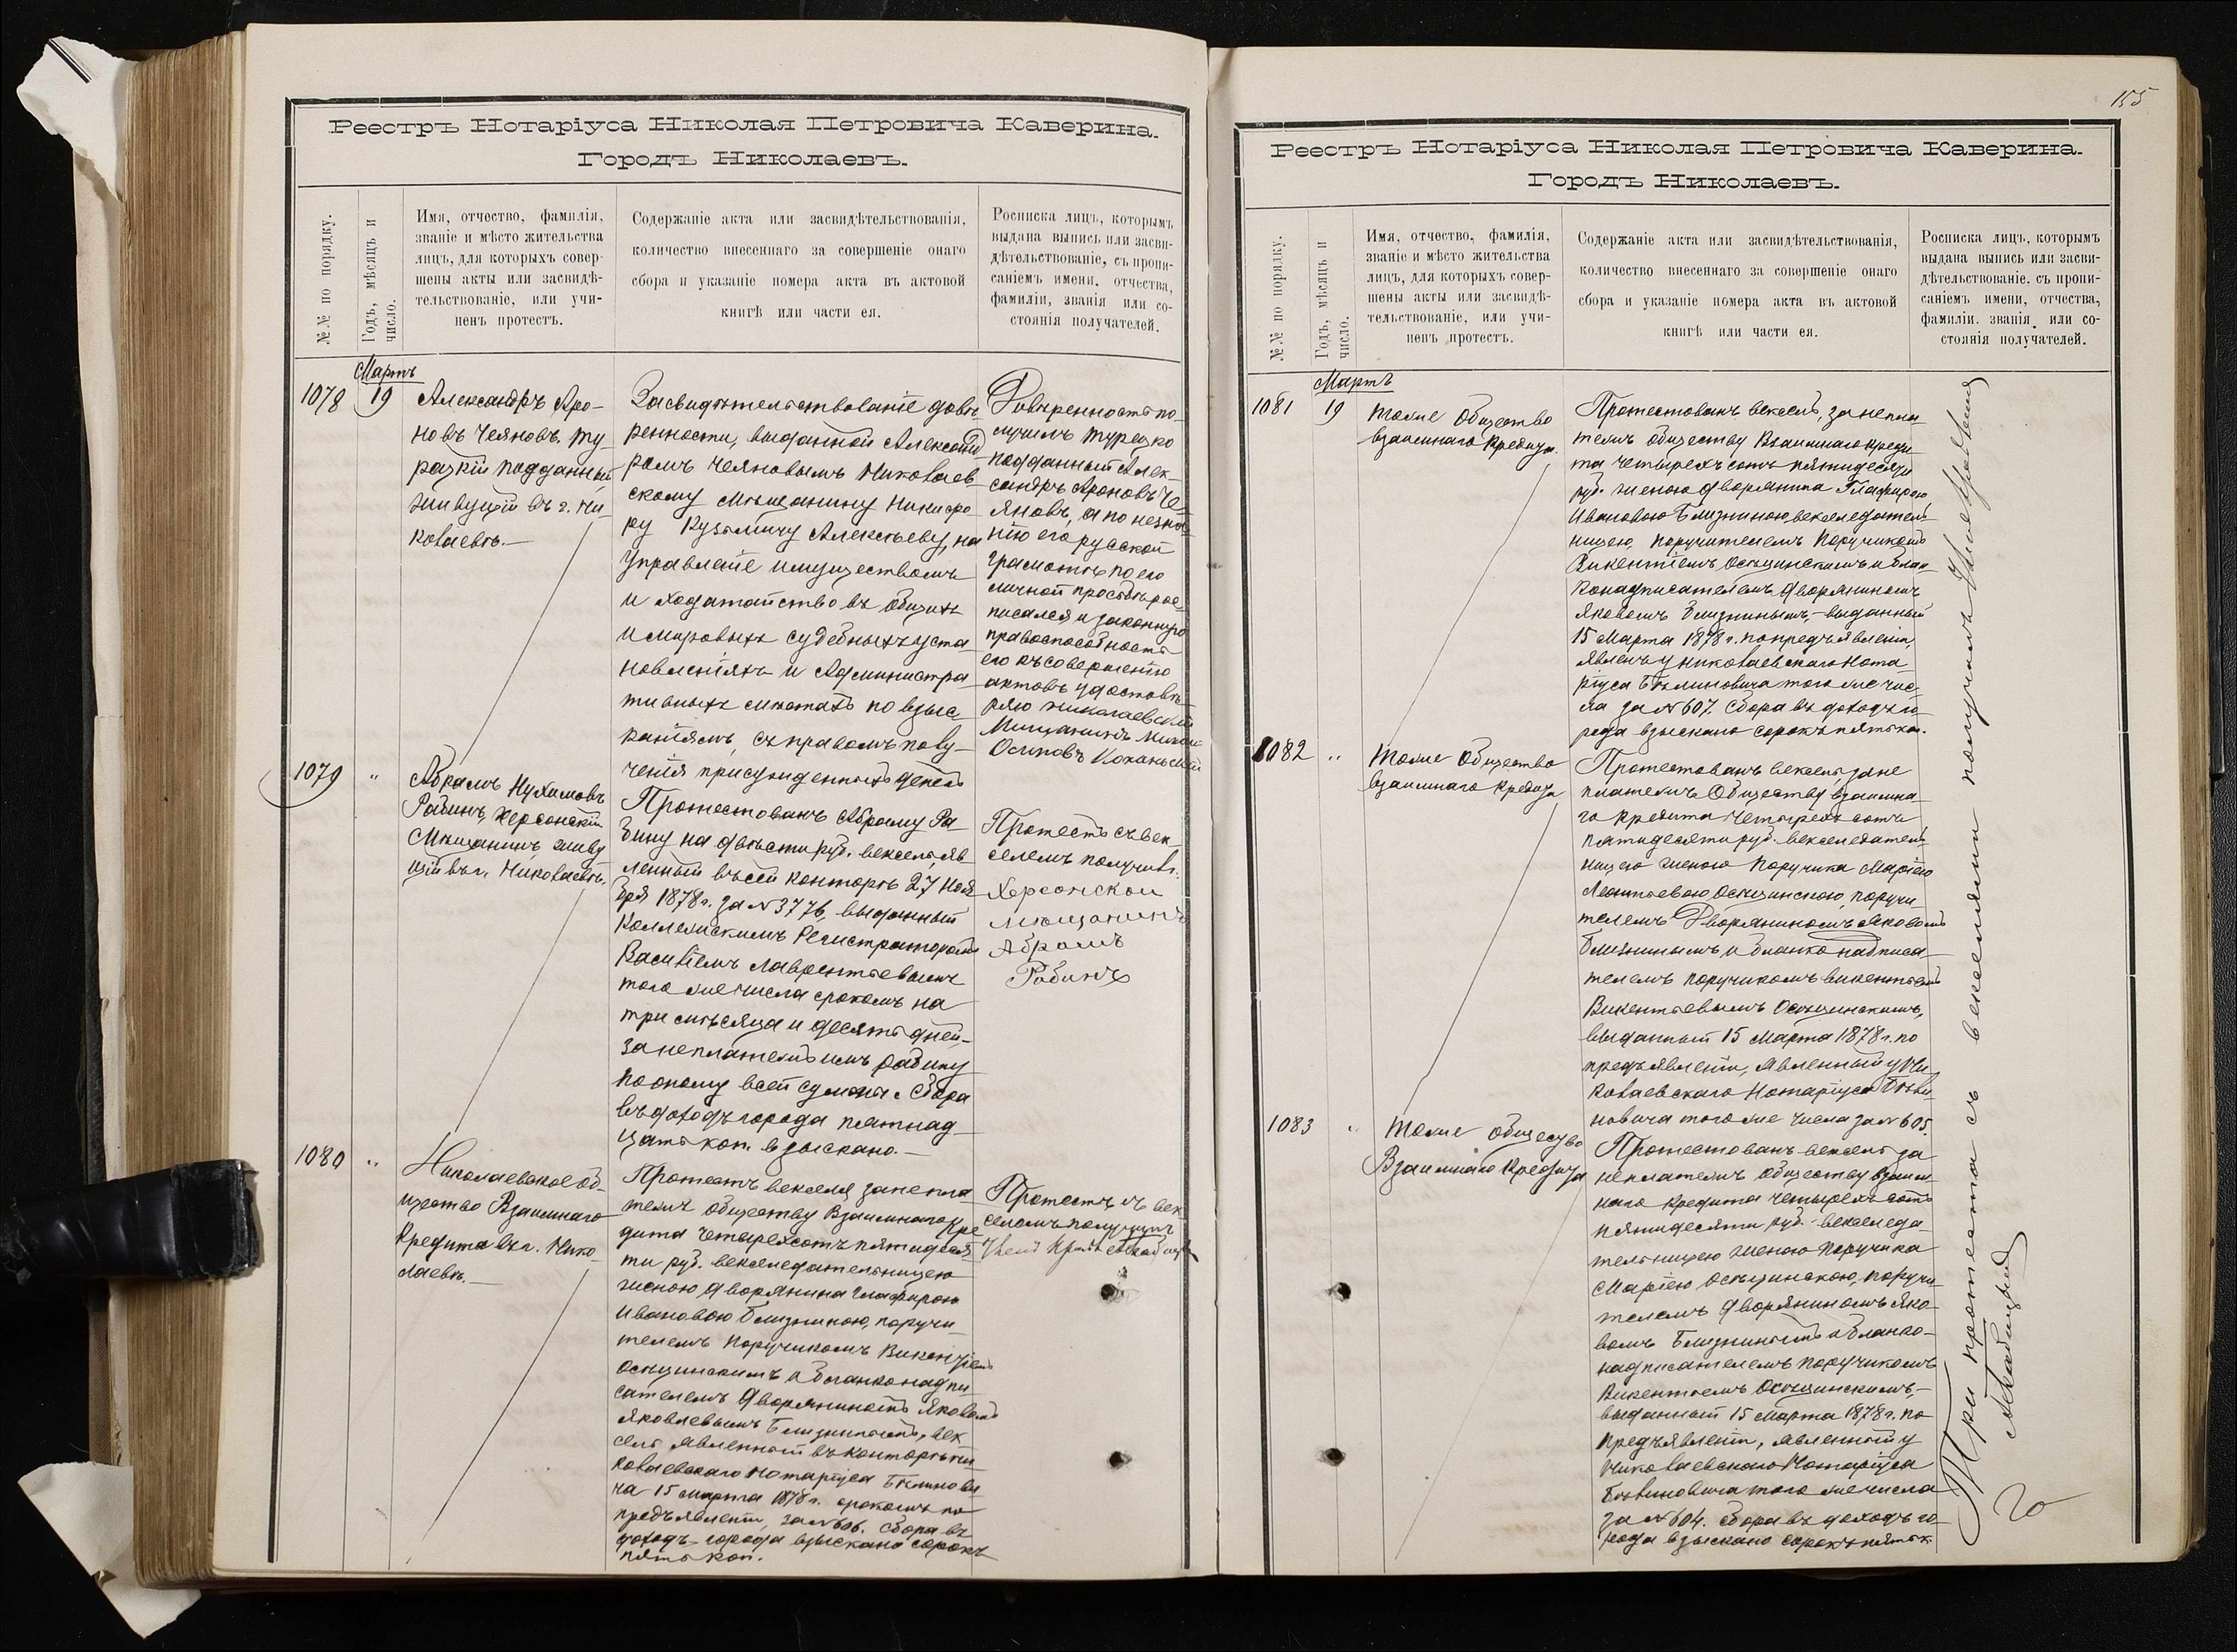 Реестръ Нотаріуса Николая Петровича Каверина.
Городъ Николаевъ.
№№ по порядку.
Годъ, мѣсяцъ и
число.
Имя, отчество, фамилія,
званіе и мѣсто жительства
лицъ, для которыхъ совер-
шены акты или засвидѣ-
тельствованіе, или учи-
ненъ протестъ.
Содержаніе акта или засвидѣтельствованія,
количество внесеннаго за совершеніе онаго
сбора и указаніе номера акта въ актовой
книгѣ или части ея.
Росписка лицъ, которымъ
выдана выпись или засви-
дѣтельствованіе, съ пропи-
саніемъ имени, отчества,
фамиліи, званія или со-
стоянія получателей.
Мартъ
1078
19
Александръ Аро-
новъ Челновъ, ту-
рецкій подданный
живущій въ г. Ни-
колаевѣ.
Засвидѣтельствованіе довѣ
ренности, выданной Александ
ромъ Челновымъ Николаев-
скому мѣщанину Никифо-
ру Кузьмичу Алексѣеву, на
управленіе имуществомъ
и ходатайство въ общихъ
и мировыхъ судебныхъ уста
новленіяхъ и Администра-
тивныхъ мѣстахъ по взыс-
каніямъ, съ правомъ полу-
ченія присужденныхъ денегъ
Довѣренность по-
лучилъ турецко
подданный Алек-
сандръ Ароновъ Че-
лновъ, а по незна-
нію его русской
грамотѣ по его
личной просьбѣ рос-
писался и законную
правоспособность
его къ совершенію
актовъ удостовѣ-
ряю Николаевскій
Мѣщанинъ
Осиповъ
1079
"
Абрамъ Нухимовъ
Рабинъ, Херсонскій
Мѣщанинъ, живу
щій въ г. Николаевѣ.
Протестованъ Абраму Ра-
бину на двѣсти руб. вексель, яв
ленный въ сей конторѣ 27 Ноя
бря 1878 г. за № 3776, выданный
Коллежскимъ Регистраторомъ
Василіемъ Лаврентьевымъ
того же числа срокомъ на
три мѣсяца и десять дней,
за неплатежъ имъ Рабину
по оному всей суммы. Сбора
въ доходъ города пятнад-
цать коп. взыскано.
Протестъ съ век-
селемъ получилъ
Херсонской
мѣщанинъ
Абрамъ
Рабинъ
1080
"
Николаевское Об-
щество Взаимнаго
Кредита въ г. Нико-
лаевѣ.
Протестъ векселя за непла
тежъ обществу Взаимнаго Кре
дита четырехсотъ пятидеся
ти руб. векселедательницею
женою дворянина Глафирою
Ивановою Близниною, поручи-
телемъ Поручикомъ Викентіемъ
Осецинскимъ и бланконадпи
сателемъ дворяниномъ Яковомъ
Яковлевымъ Близнинымъ, век
сель явленный въ конторѣ Ни
колаевскаго Нотаріуса Бѣлинови
ча 15 Марта 1878 г. срокомъ по
предъявленіи, за № 606. Сбора въ
доходъ города взыскано сорокъ
пять коп.
Протестъ съ век-
селемъ получилъ
155
Реестръ Нотаріуса Николая Петровича Каверина.
Городъ Николаевъ.
№№ по порядку.
Годъ, мѣсяцъ и
число.
Имя, отчество, фамилія,
званіе и мѣсто жительства
лицъ, для которыхъ совер-
шены акты или засвидѣ-
тельствованіе, или учи-
ненъ протестъ.
Содержаніе акта или засвидѣтельствованія,
количество внесеннаго за совершеніе онаго
сбора и указаніе номера акта въ актовой
книгѣ или части ея.
Росписка лицъ, которымъ
выдана выпись или засви-
дѣтельствованіе. съ пропи-
саніемъ имени, отчества,
фамиліи. званія или со-
стоянія получателей.
Мартъ
1081
19
Тоже Общество
взаимнаго Кредита.
Протестованъ вексель, за непла
тежъ обществу Взаимнаго Креди-
та четырехъ сотъ пятидесяти
руб. женою дворянина Глафирою
Ивановою Близниною, векселедатель-
ницею, поручителемъ Поручикомъ
Викентіемъ Осецинскимъ и блан-
конадписателемъ дворяниномъ
Яковомъ Близнинымъ, выданный
15 Марта 1878 г. по предъявленіи,
явленъ у Николаевскаго Нота
ріуса Бѣлиновича того же чис-
ла за № 607. Сбора въ доходъ го-
рода взыскано сорокъ пять коп.
1082
"
Тоже Общество
взаимнаго Кредита
Протестованъ вексель, за не
платежъ Обществу взаимна-
го Кредита четырехъ сотъ
пятидесяти руб. векселедатель-
ницею женою Поручика Маріею
Леонтьевою Осецинскою, поручи
телемъ Дворяниномъ Яковомъ
Близнинымъ и бланконадписа-
телемъ поручикомъ Викентіемъ
Викентьевымъ Осецинскимъ,
выданный 15 Марта 1878 г. по
предъявленіи, явленный у Ни
колаевскаго Нотаріуса Бѣли
новича того же числа за № 605.
1083
"
Тоже Общество
Взаимнаго Кредита
Протестованъ вексель за
неплатежъ обществу взаим-
наго кредита четырехъ сотъ
пятидесяти руб. векселеда-
тельницею женою Поручика
Маріею Осецинскою, поручи
телемъ дворяниномъ Яко-
вомъ Близнинымъ и бланко-
надписателемъ поручикомъ
Викентіемъ Осецинскимъ,
выданный 15 Марта 1878 г. по
предъявленіи, явленный у
Николаевскаго Нотаріуса
Бѣлиновича того же числа
за № 604. Сбора въ доходъ го-
рода взыскано сорокъ пять к.
Три протеста съ векселями получилъ